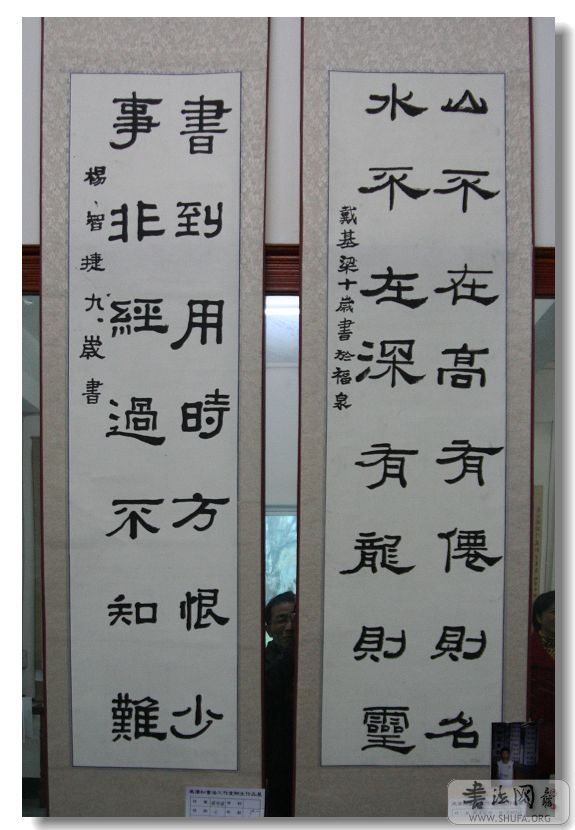 山不在高有僊則名
水不左深有龍則靈
戴基梁十歲書於福泉
書到用時方恨少
事非經過不知難
楊智捷九歲書
书法网
WWW.SHUFA.ORG